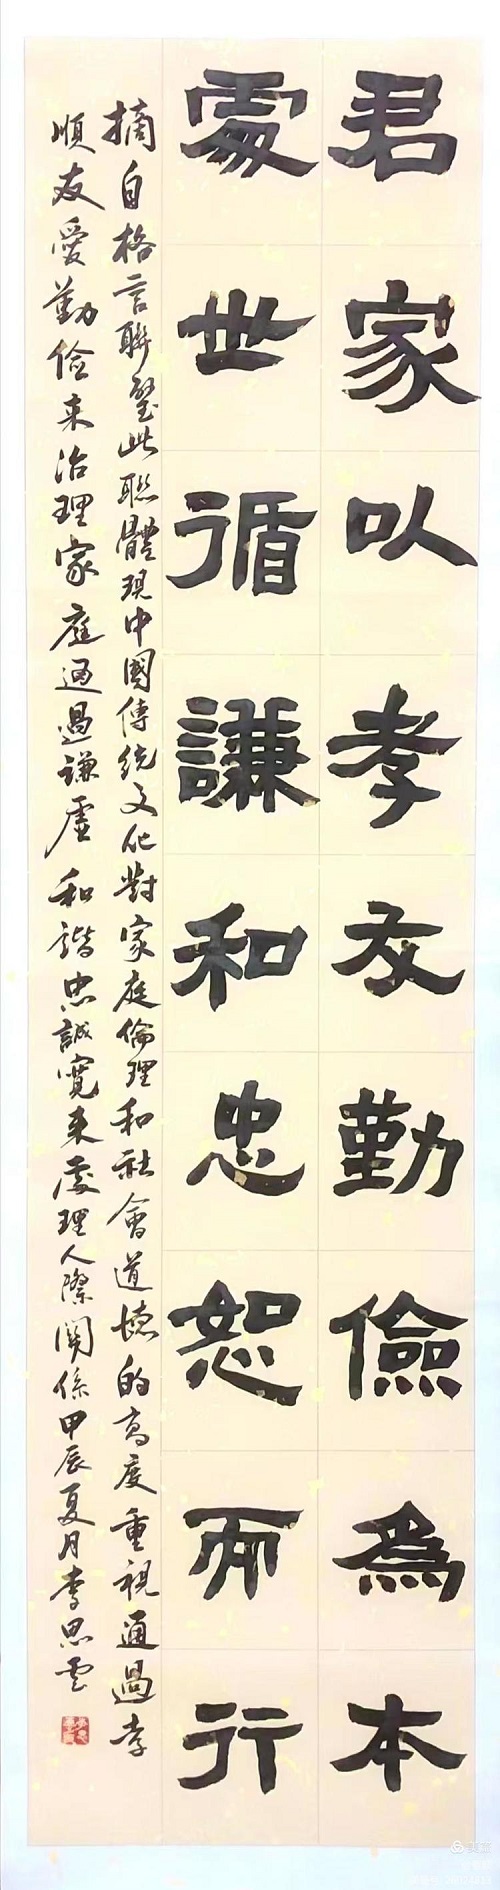 君家以孝友勤儉為本
處世循謙和忠恕而行
摘自格言聯璧此聯體現中國傳統文化對家庭倫理和社會道德的高度重視通過孝
順友愛勤儉来治理家庭通過謙虛和諧忠誠寬来處理人際關係甲辰夏月李思雲